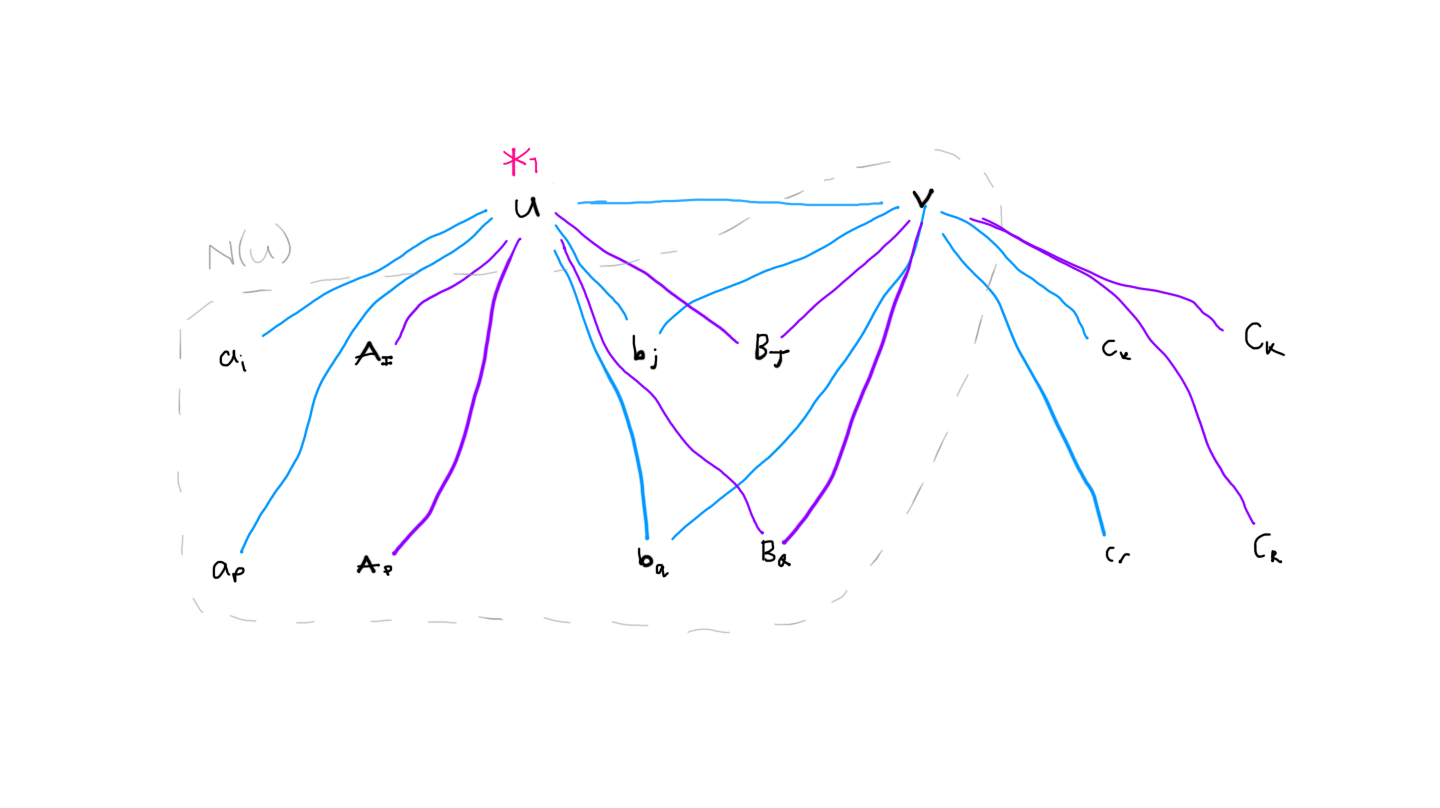 *1
u
v
N(u)
ai
AI
bj
BJ
ck
CK
ap
AP
bq
BQ
cr
CR